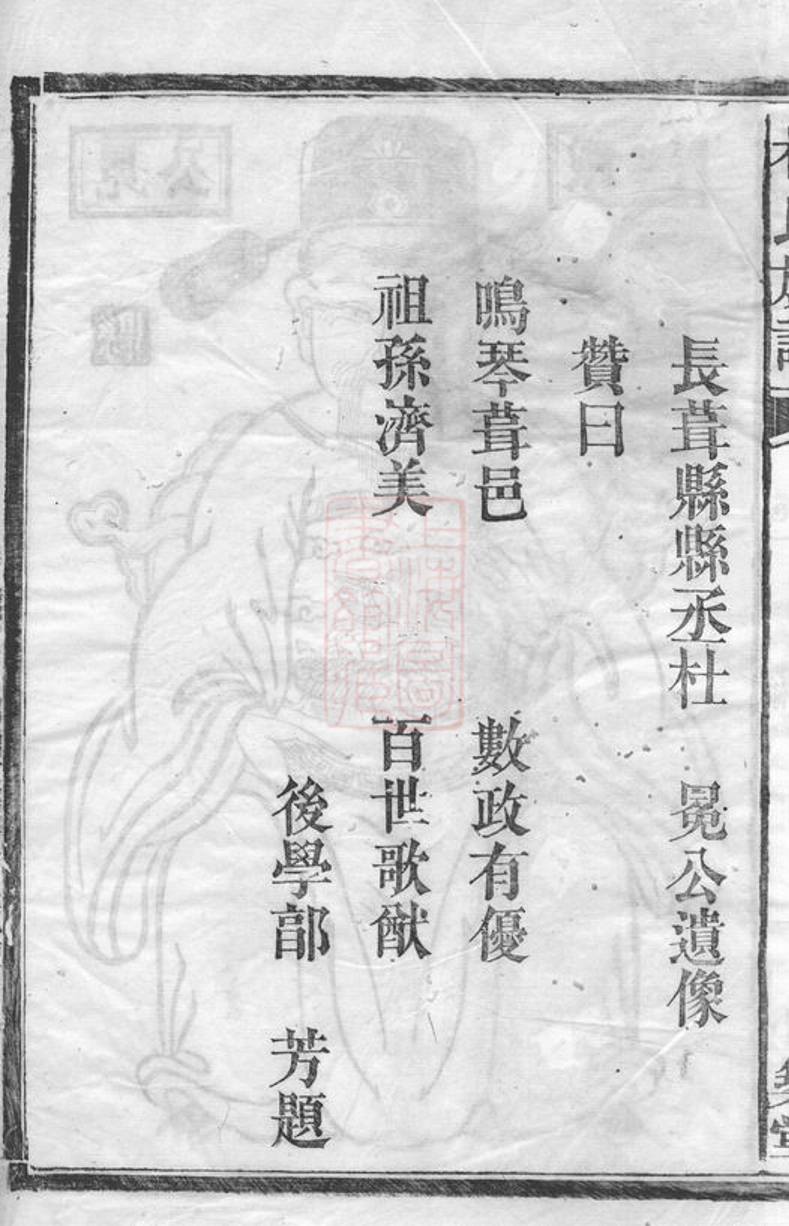 長葺縣縣丞杜 冕公遺像
贊曰
鳴琴葺邑 數政有優
祖孫濟美 百世歌猷
後學部 芳題